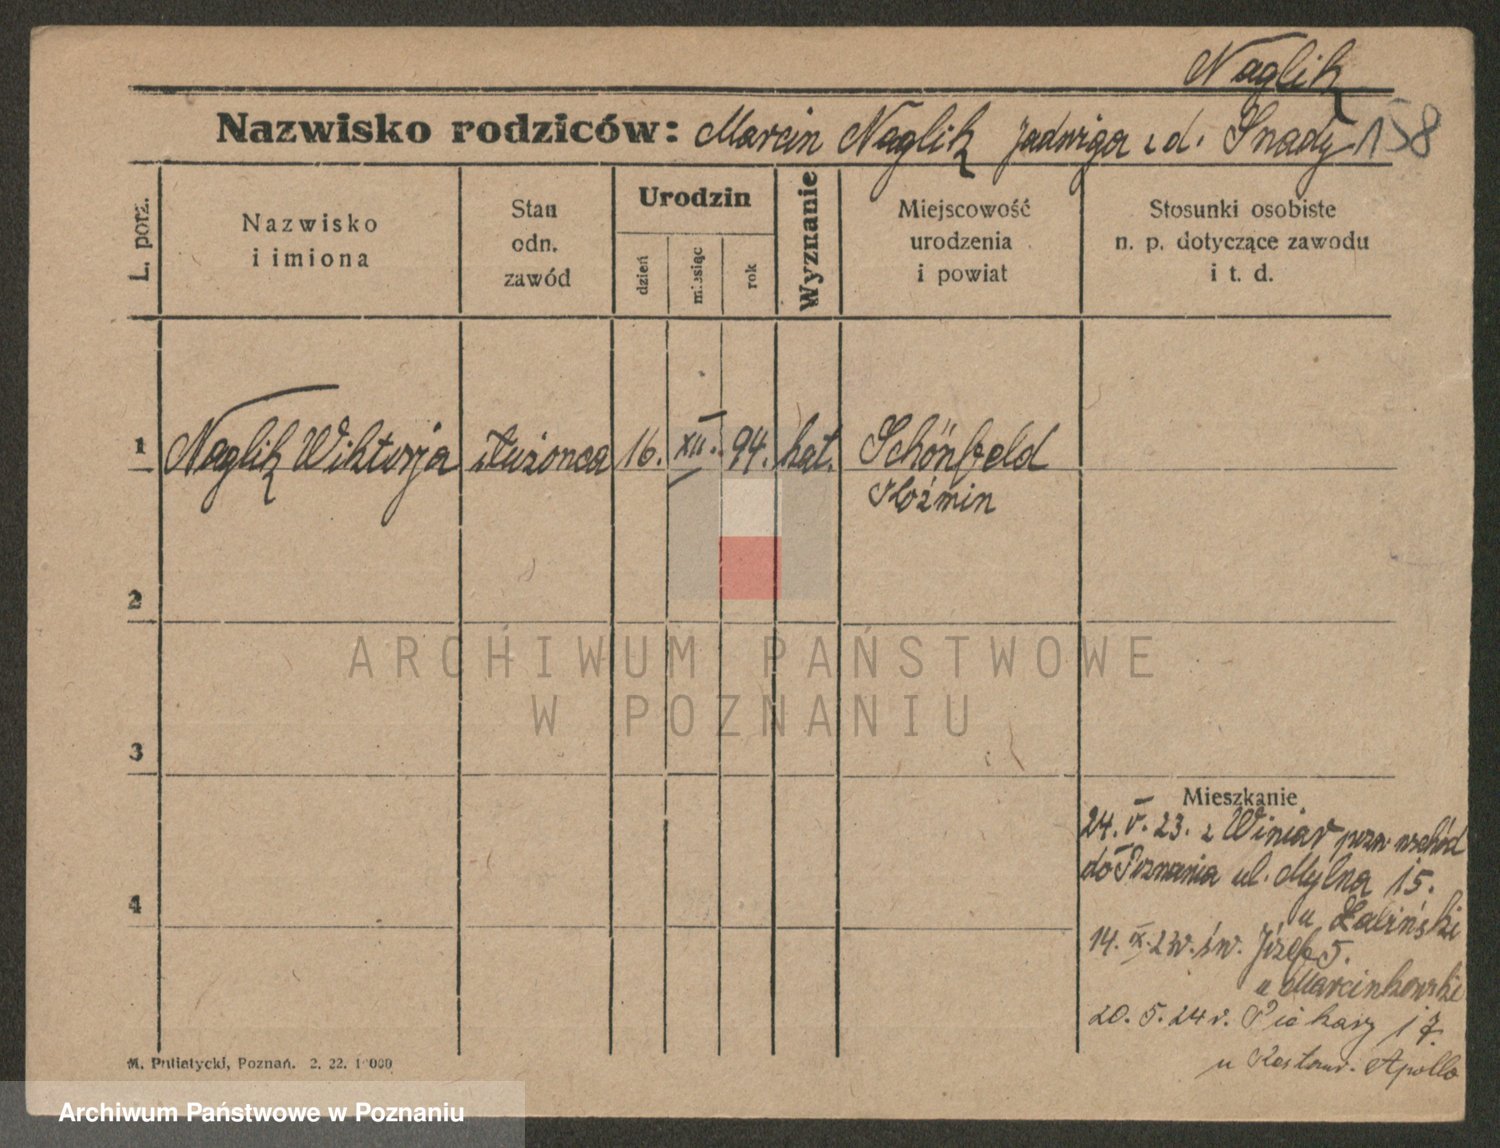 Naglik
Nazwisko rodziców: Marcin Naglik Jadwiga z d. Snady 158
L. porz.
Nazwisko
i imiona
Stan
odn.
zawód
Urodzin
dzień
miesiąc
rok
Wyznanie
Miejscowość
urodzenia
i powiat
Stosunki osobiste
n. p. dotyczące zawodu
i t. d.
1 Naglik Wiktorja służąca 16. XII. 94. kat. Schönfeld
Koźmin
2
3
4
Mieszkanie
24. V. 23. z Winiar pozn. wschód
do Poznania ul. Mylna 15.
u Zaliński
14. IX. 23 r. św. Józef 5.
u Marcinkowski
20. 5. 24 r. Piekary 17.
u Restaur. Apollo
M. Putiatycki, Poznań. 2. 22. 10000
ARCHIWUM PAŃSTWOWE
W POZNANIU
Archiwum Państwowe w Poznaniu